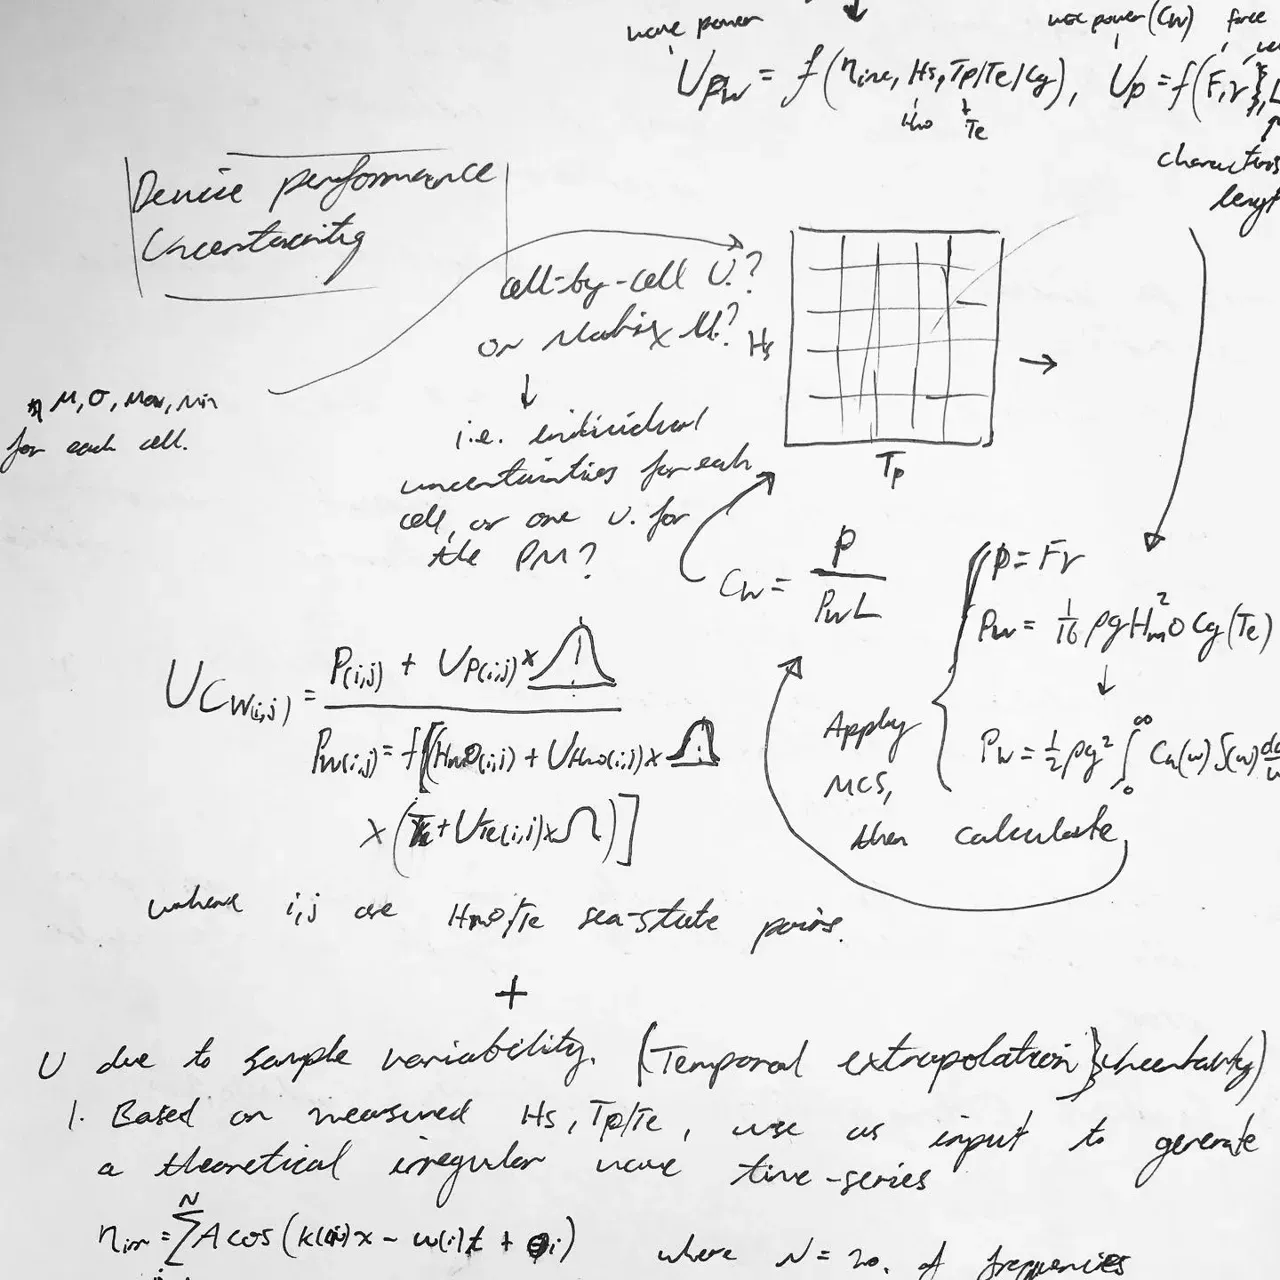 wave power
WEC power (CW) force
U_Pw = f(η_irr, Hs, Tp/Te/Cg), U_p = f(F, v
Hmo Te
characteris
length
Device performance
Uncertainty
cell-by-cell U.?
or Matrix U.?
Hs
Tp
μ, σ, Max, Min
for each cell.
i.e. individual
uncertainties for each
cell, or one U. for
the PM?
CW = P / PwL
P = Fv
Pw = 1/16 ρgH²m0 Cg(Te)
Pw = 1/2 ρg² ∫₀^∞ Ca(ω) S(ω) dω
Apply
MCS,
then calculate
U_CW(i,j) = P(i,j) + U_P(i,j) x
Pw(i,j) = f[(Hm0(i,j) + U_Hm0(i,j) x
x (Te + U_Te(i,j) x )]
where i,j are Hm0/Te sea-state pairs.
+
U due to sample variability. (Temporal extrapolation} Uncertainty)
1. Based on measured Hs, Tp/Te, use as input to generate
a theoretical irregular wave time-series
η_irr = Σ^N A cos (k(i)x - ω(i)t + θi) where N = no. of frequencies